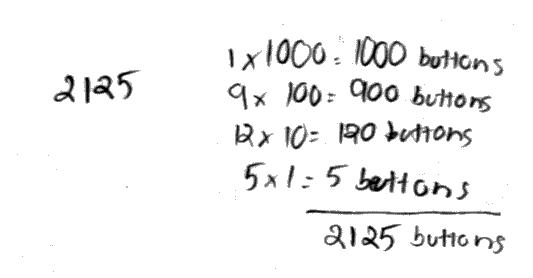 2125
1 x 1000 = 1000 buttons
9 x 100 = 900 buttons
12 x 10 = 120 buttons
5 x 1 = 5 buttons
2125 buttons